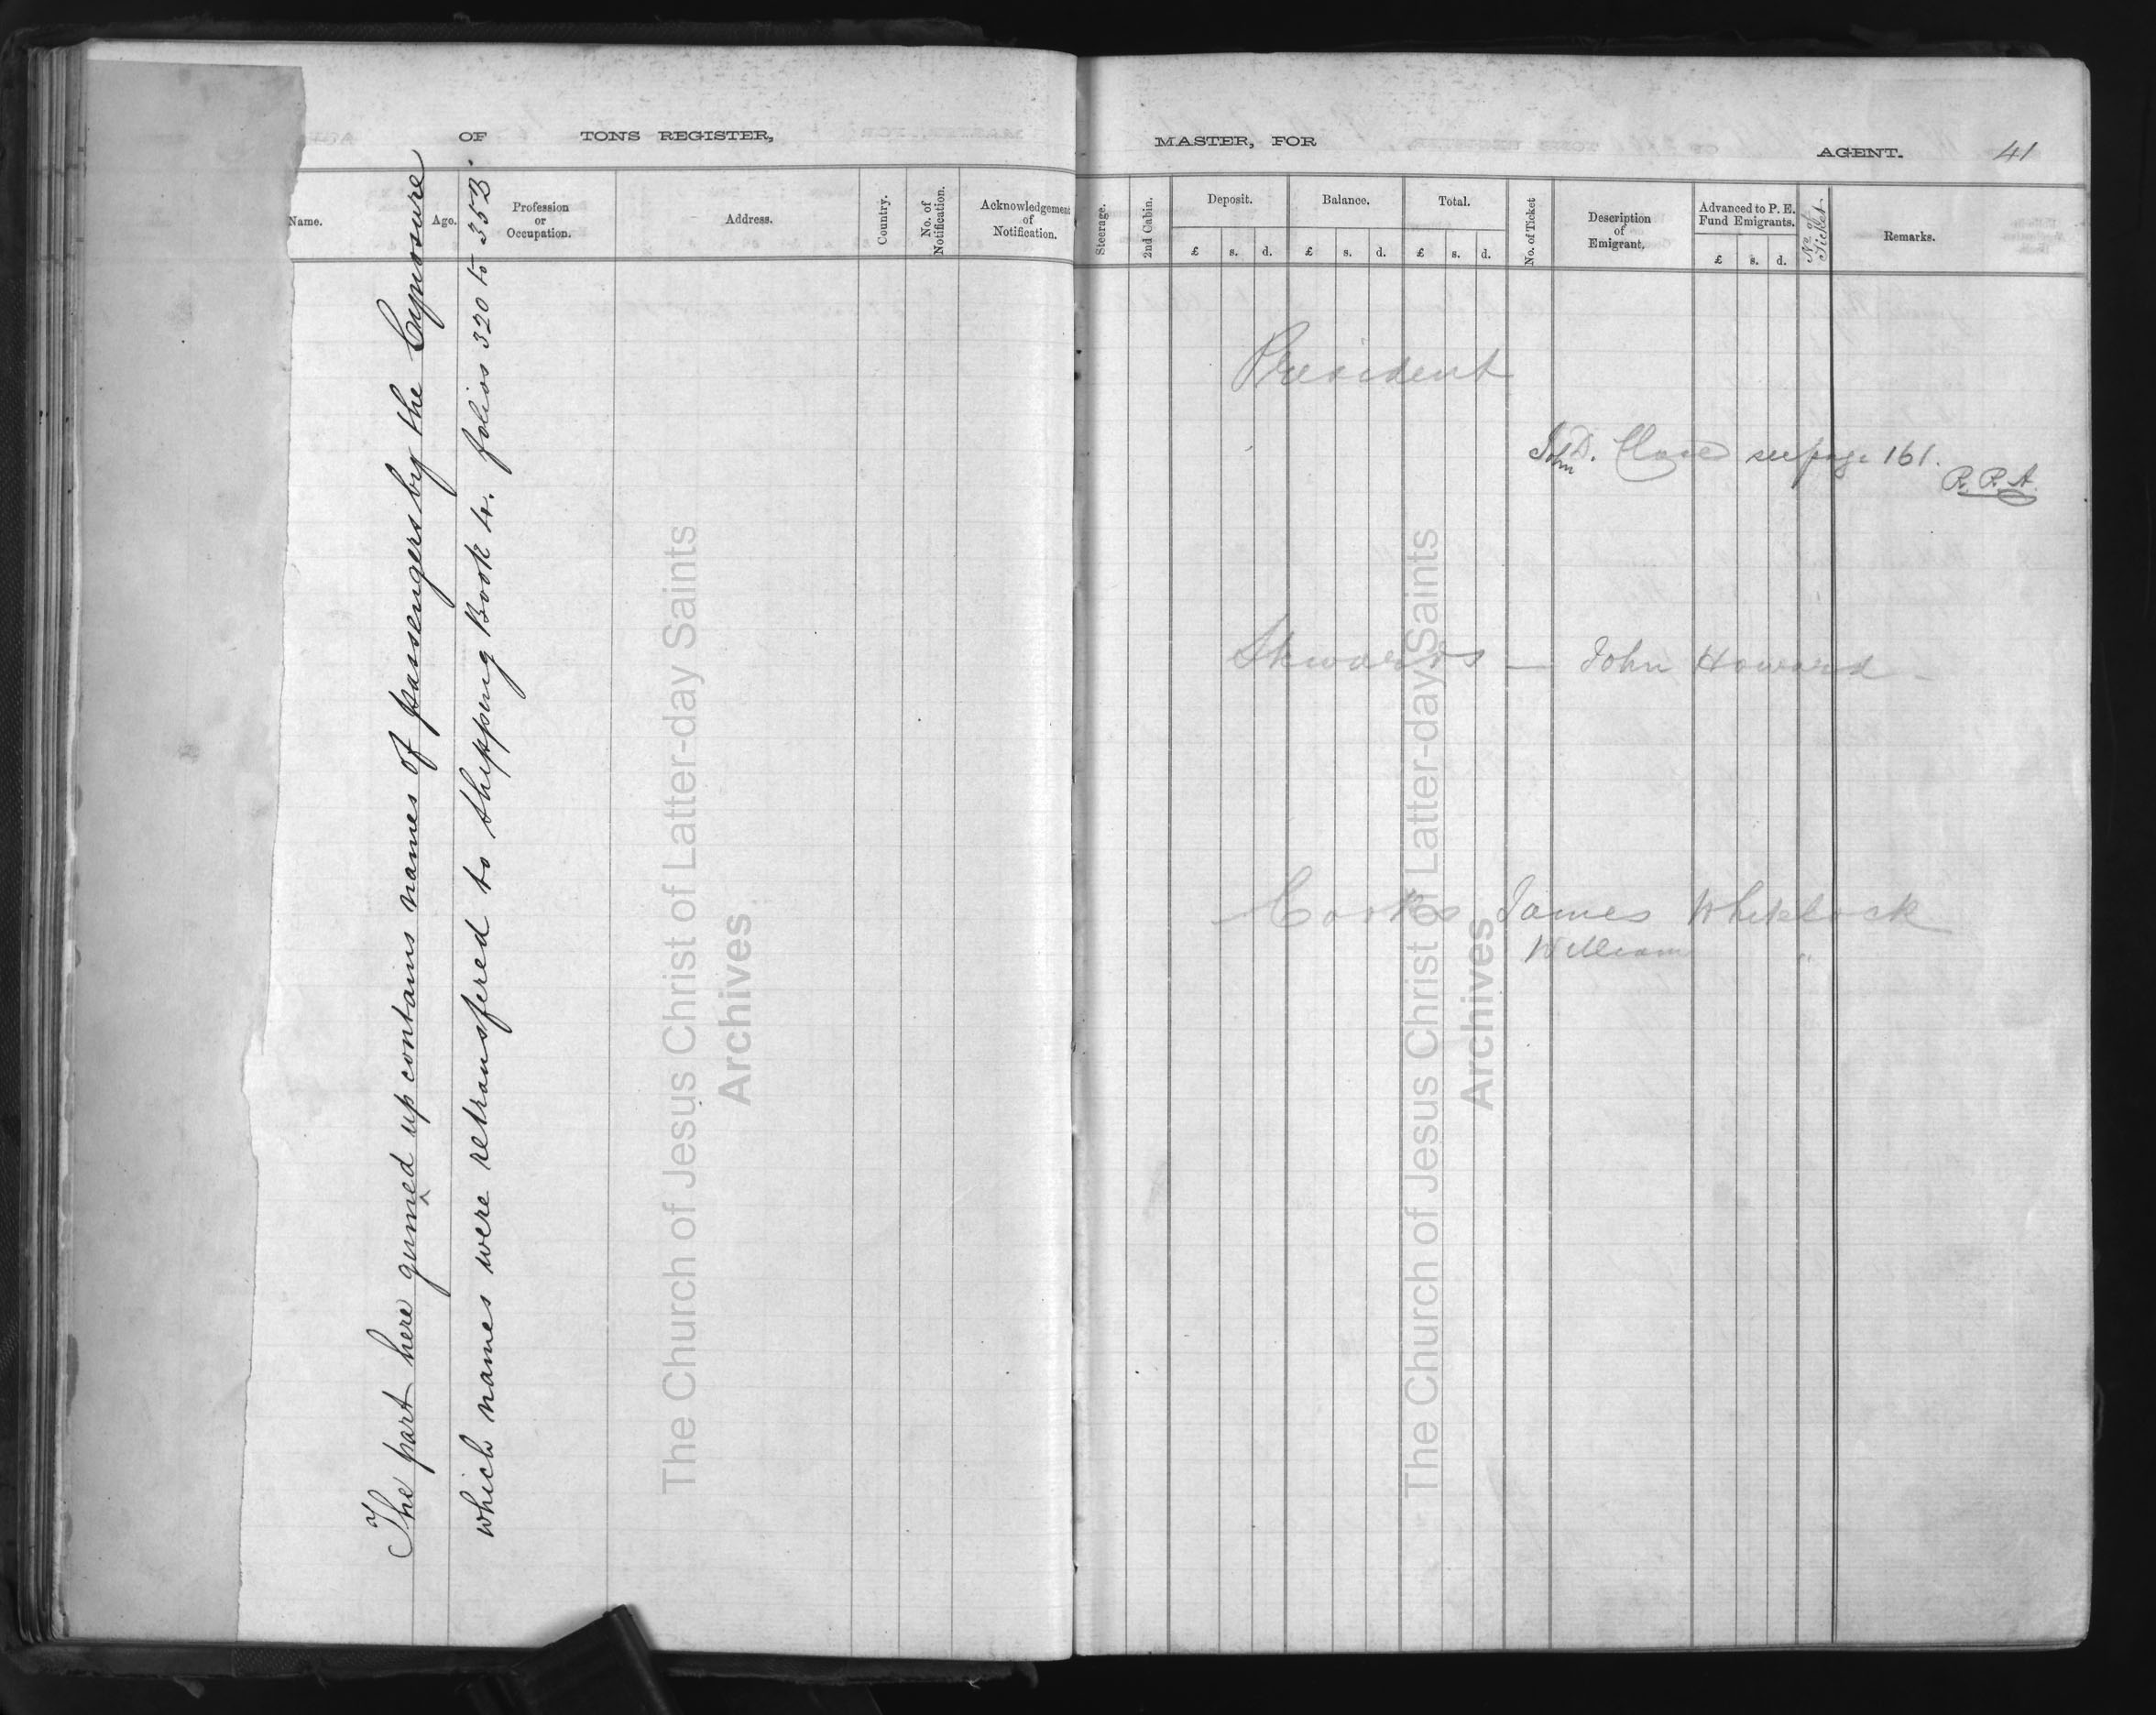 OF TONS REGISTER,
Name. Age. Profession or Occupation. Address. Country. No. of Notification. Acknowledgement of Notification.
The part here gumed up contains names of passengers by the Cynosure
which names were retransfered to Shipping Book 4. folios 320 to 353.
The Church of Jesus Christ of Latter-day Saints
Archives
MASTER, FOR AGENT. 41
Steerage. 2nd Cabin. Deposit. Balance. Total. No. of Ticket Description of Emigrant. Advanced to P. E. Fund Emigrants. No. of Ticket Remarks.
£ s. d. £ s. d. £ s. d. £ s. d.
President
John D. see page 161.
R. P. A.
Stewards — John Howard -
Cooks James Whitelock
William "
The Church of Jesus Christ of Latter-day Saints
Archives